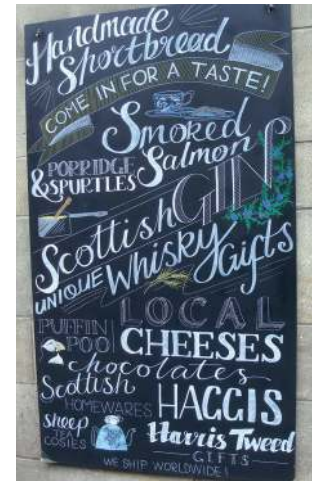 Handmade
Shortbread
COME IN FOR A TASTE!
Smoked
Salmon
PORRIDGE
& SPURTLES
GIN
Scottish
Whisky
UNIQUE Gifts
LOCAL
CHEESES
PUFFIN
POO
chocolates
Scottish
HOMEWARES
HAGGIS
sheep
TEA
COSIES
Harris Tweed
GIFTS
WE SHIP WORLDWIDE!